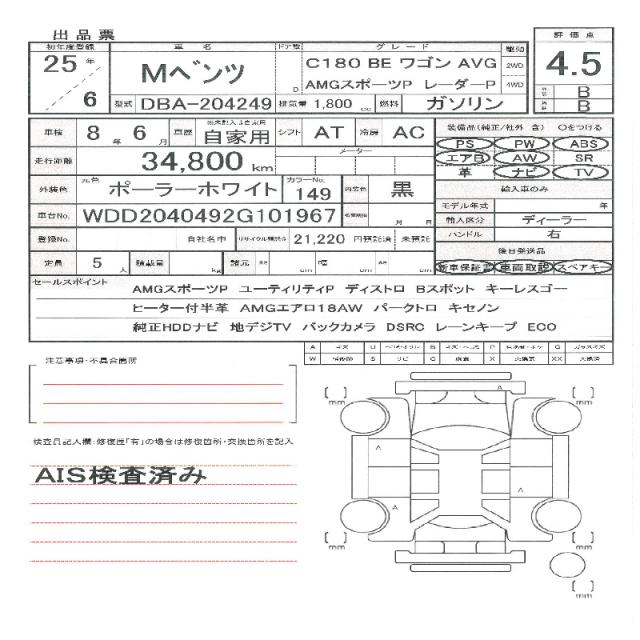 出品票
初年度登録 車名 ドア数 グレード 駆動 評価点
25年 / 6 Mベンツ D C180 BE ワゴン AVG 2WD 4.5
AMGスポーツP レーダーP 4WD B
型式 DBA-204249 排気量 1,800 cc 燃料 ガソリン B
車検 8年 6月 車歴 自家用 シフト AT 冷房 AC 装備品(純正/社外 含) ○をつける
PS PW ABS
走行距離 34,800 km メーター エアB AW SR
革 ナビ TV
外装色 元色 ポーラーホワイト カラーNo. 149 内装色 黒 輸入車のみ
モデル年式 年
車台No. WDD2040492G101967 月 日 輸入区分 ディーラー
登録No. 自社名中 リサイクル預託金 21,220 円預託済 未預託 ハンドル 右
後日発送品
定員 5人 積載量 kg 諸元 cm 幅 cm cm 新車保証書 車両取説 スペアキー
セールスポイント
AMGスポーツP ユーティリティP ディストロ Bスポット キーレスゴー
ヒーター付半革 AMGエアロ18AW パークトロ キセノン
純正HDDナビ 地デジTV バックカメラ DSRC レーンキープ ECO
A U B P G
W S サビ C X XX
注意事項・不具合箇所
検査員記入欄:修復歴「有」の場合は修復箇所・交換箇所を記入
AIS検査済み
[ ] mm [ ] mm
A
A
A
[ ] mm [ ] mm
[ ] mm